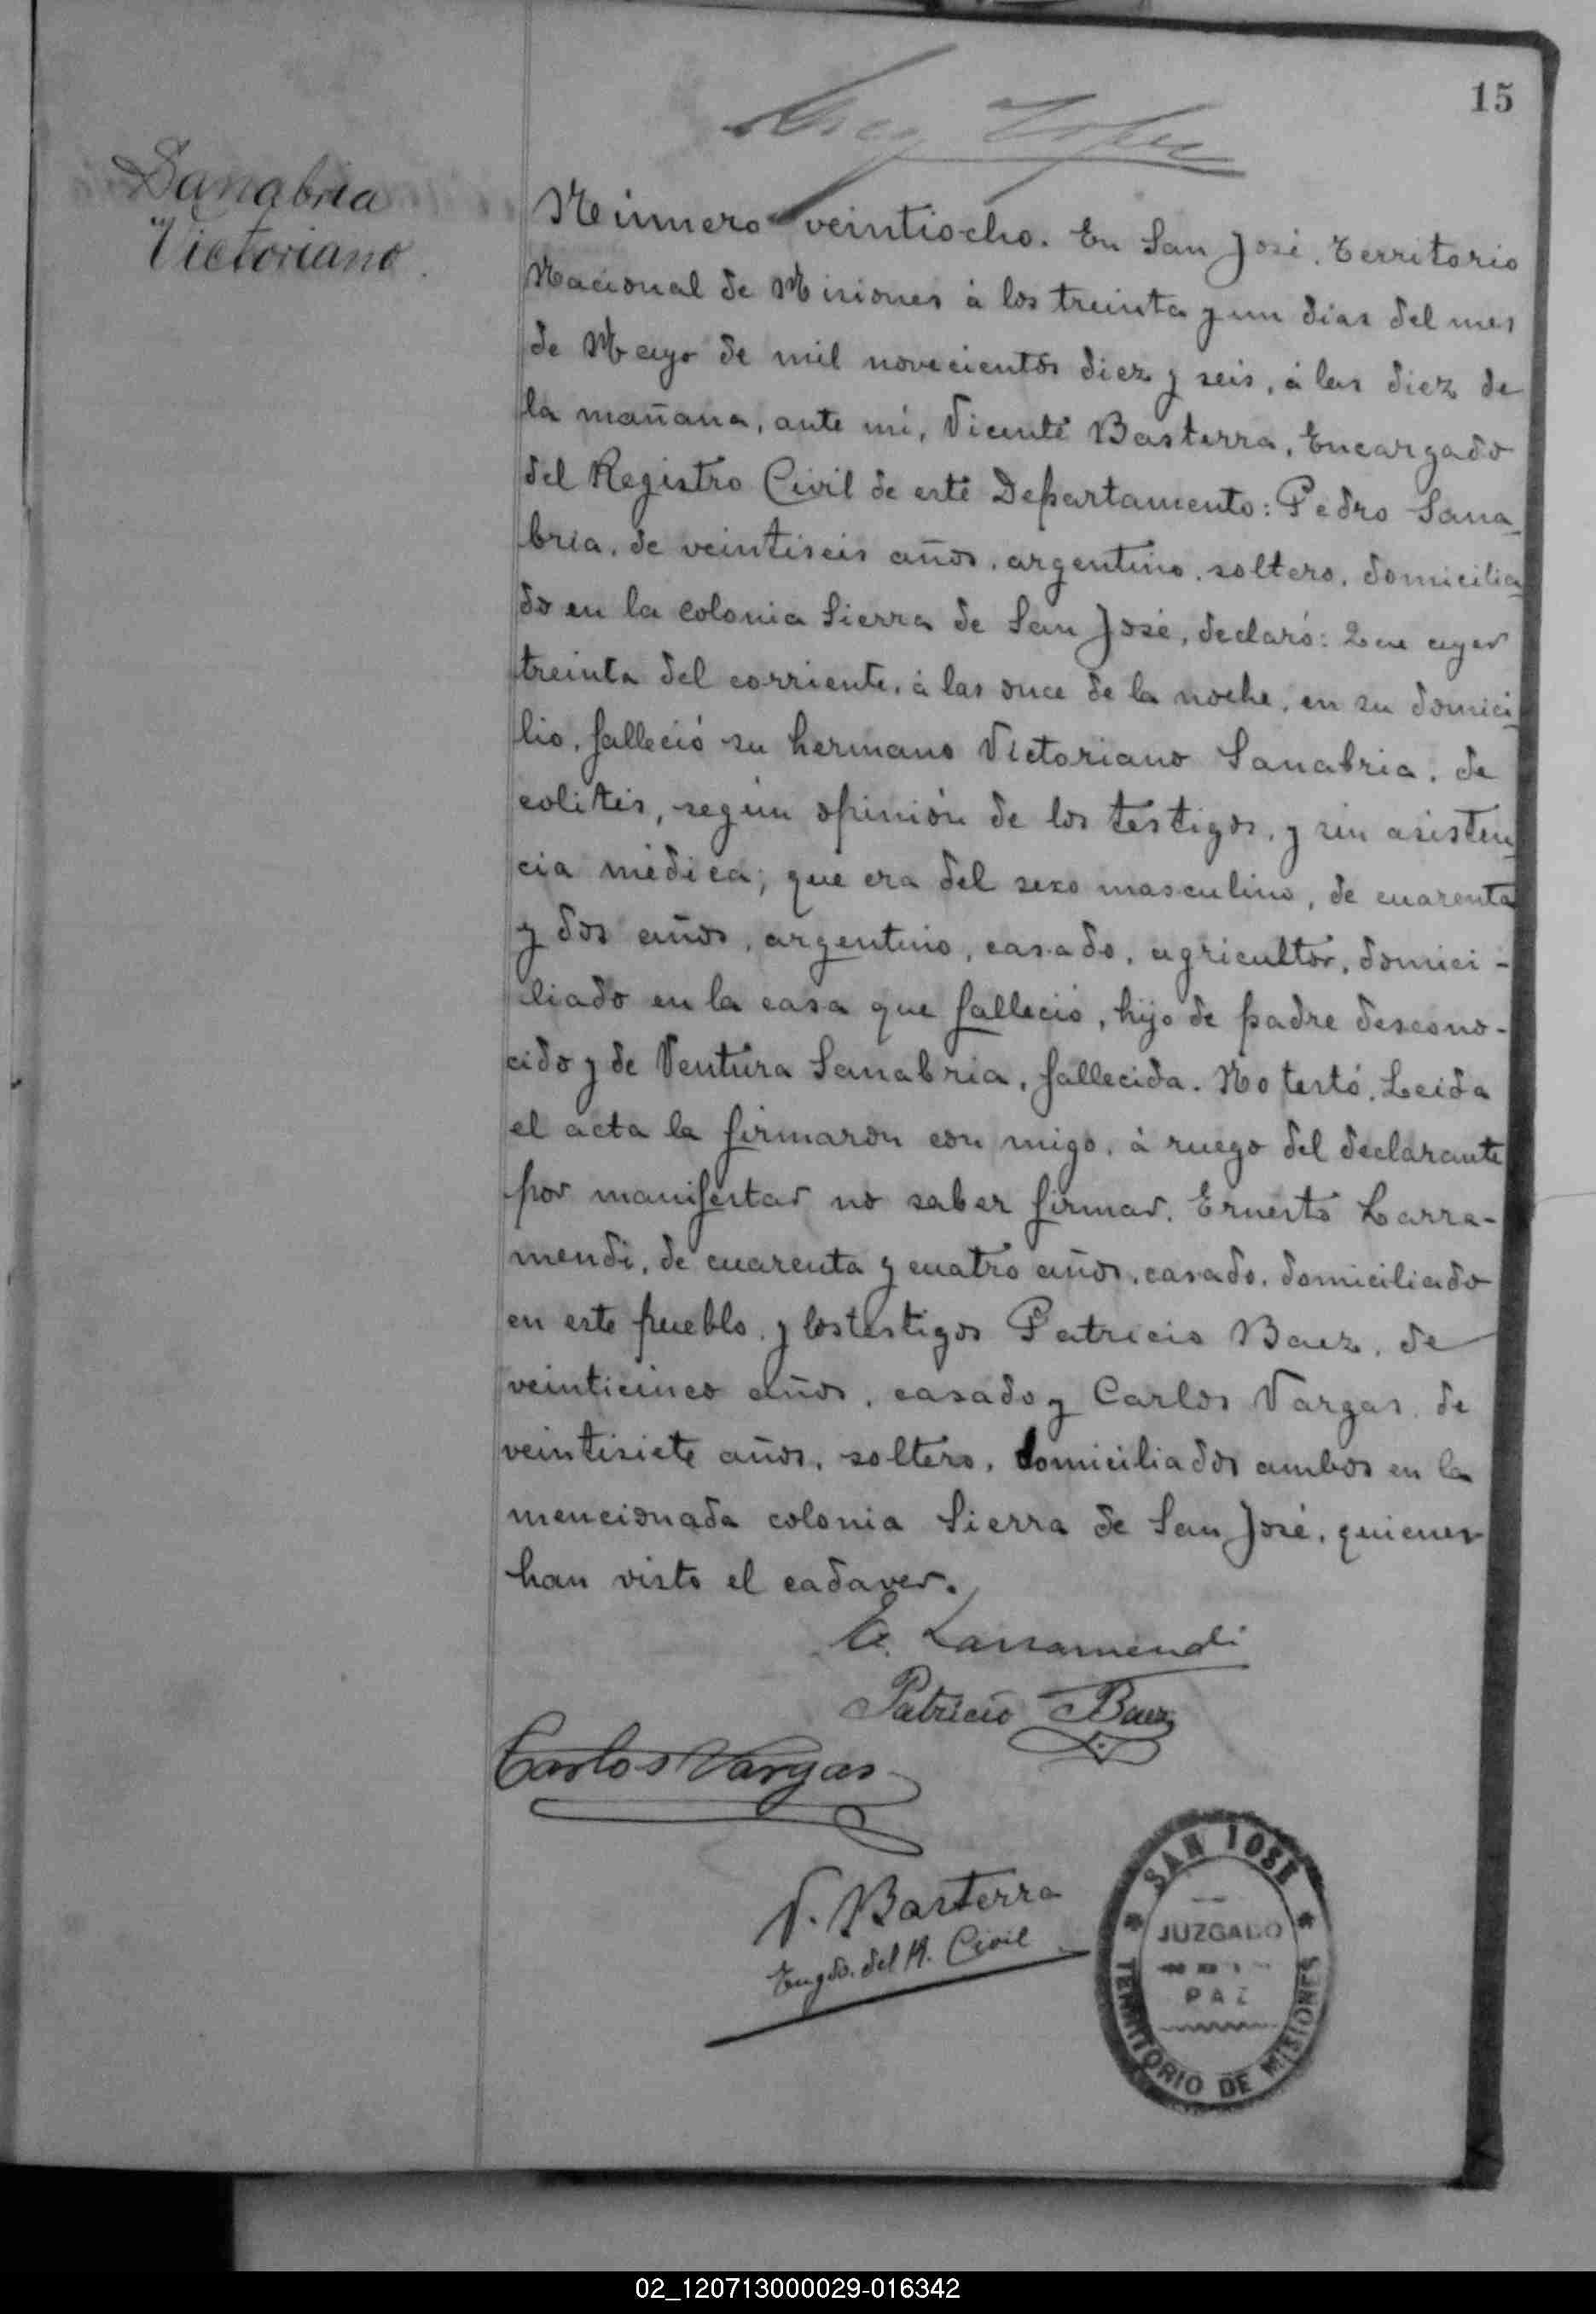 15
Sanabria
Victoriano.
Número veintiocho. En San José, Territorio
Nacional de Misiones á los treinta y un dias del mes
de Mayo de mil novecientos diez y seis, á las diez de
la mañana, ante mí, Vicente Basterra, Encargado
del Registro Civil de este Departamento: Pedro Sana_
bria, de veintiseis años, argentino, soltero, domicilia_
do en la colonia Sierra de San José, declaró: Que ayer
treinta del corriente, á las once de la noche, en su domici_
lio, falleció su hermano Victoriano Sanabria, de
colitis, según opinión de los testigos, y sin asisten_
cia médica; que era del sexo masculino, de cuarenta
y dos años, argentino, casado, agricultor, domici-
liado en la casa que falleció, hijo de padre descono-
cido y de Ventura Sanabria, fallecida. No testó. Leida
el acta la firmaron con migo, á ruego del declarante
por manifestar no saber firmar, Ernesto Larra-
mendi, de cuarenta y cuatro años, casado, domiciliado
en este pueblo, y los testigos Patricio Baez, de
veinticinco años, casado y Carlos Vargas, de
veintisiete años, soltero, domiciliados ambos en la
mencionada colonia Sierra de San José, quienes
han visto el cadaver.
E. Larramendi
Patricio Baez
Carlos Vargas
V. Basterra
Engdo. del R. Civil
SAN JOSE
JUZGADO
PAZ
TERRITORIO DE MISIONES
02_120713000029-016342